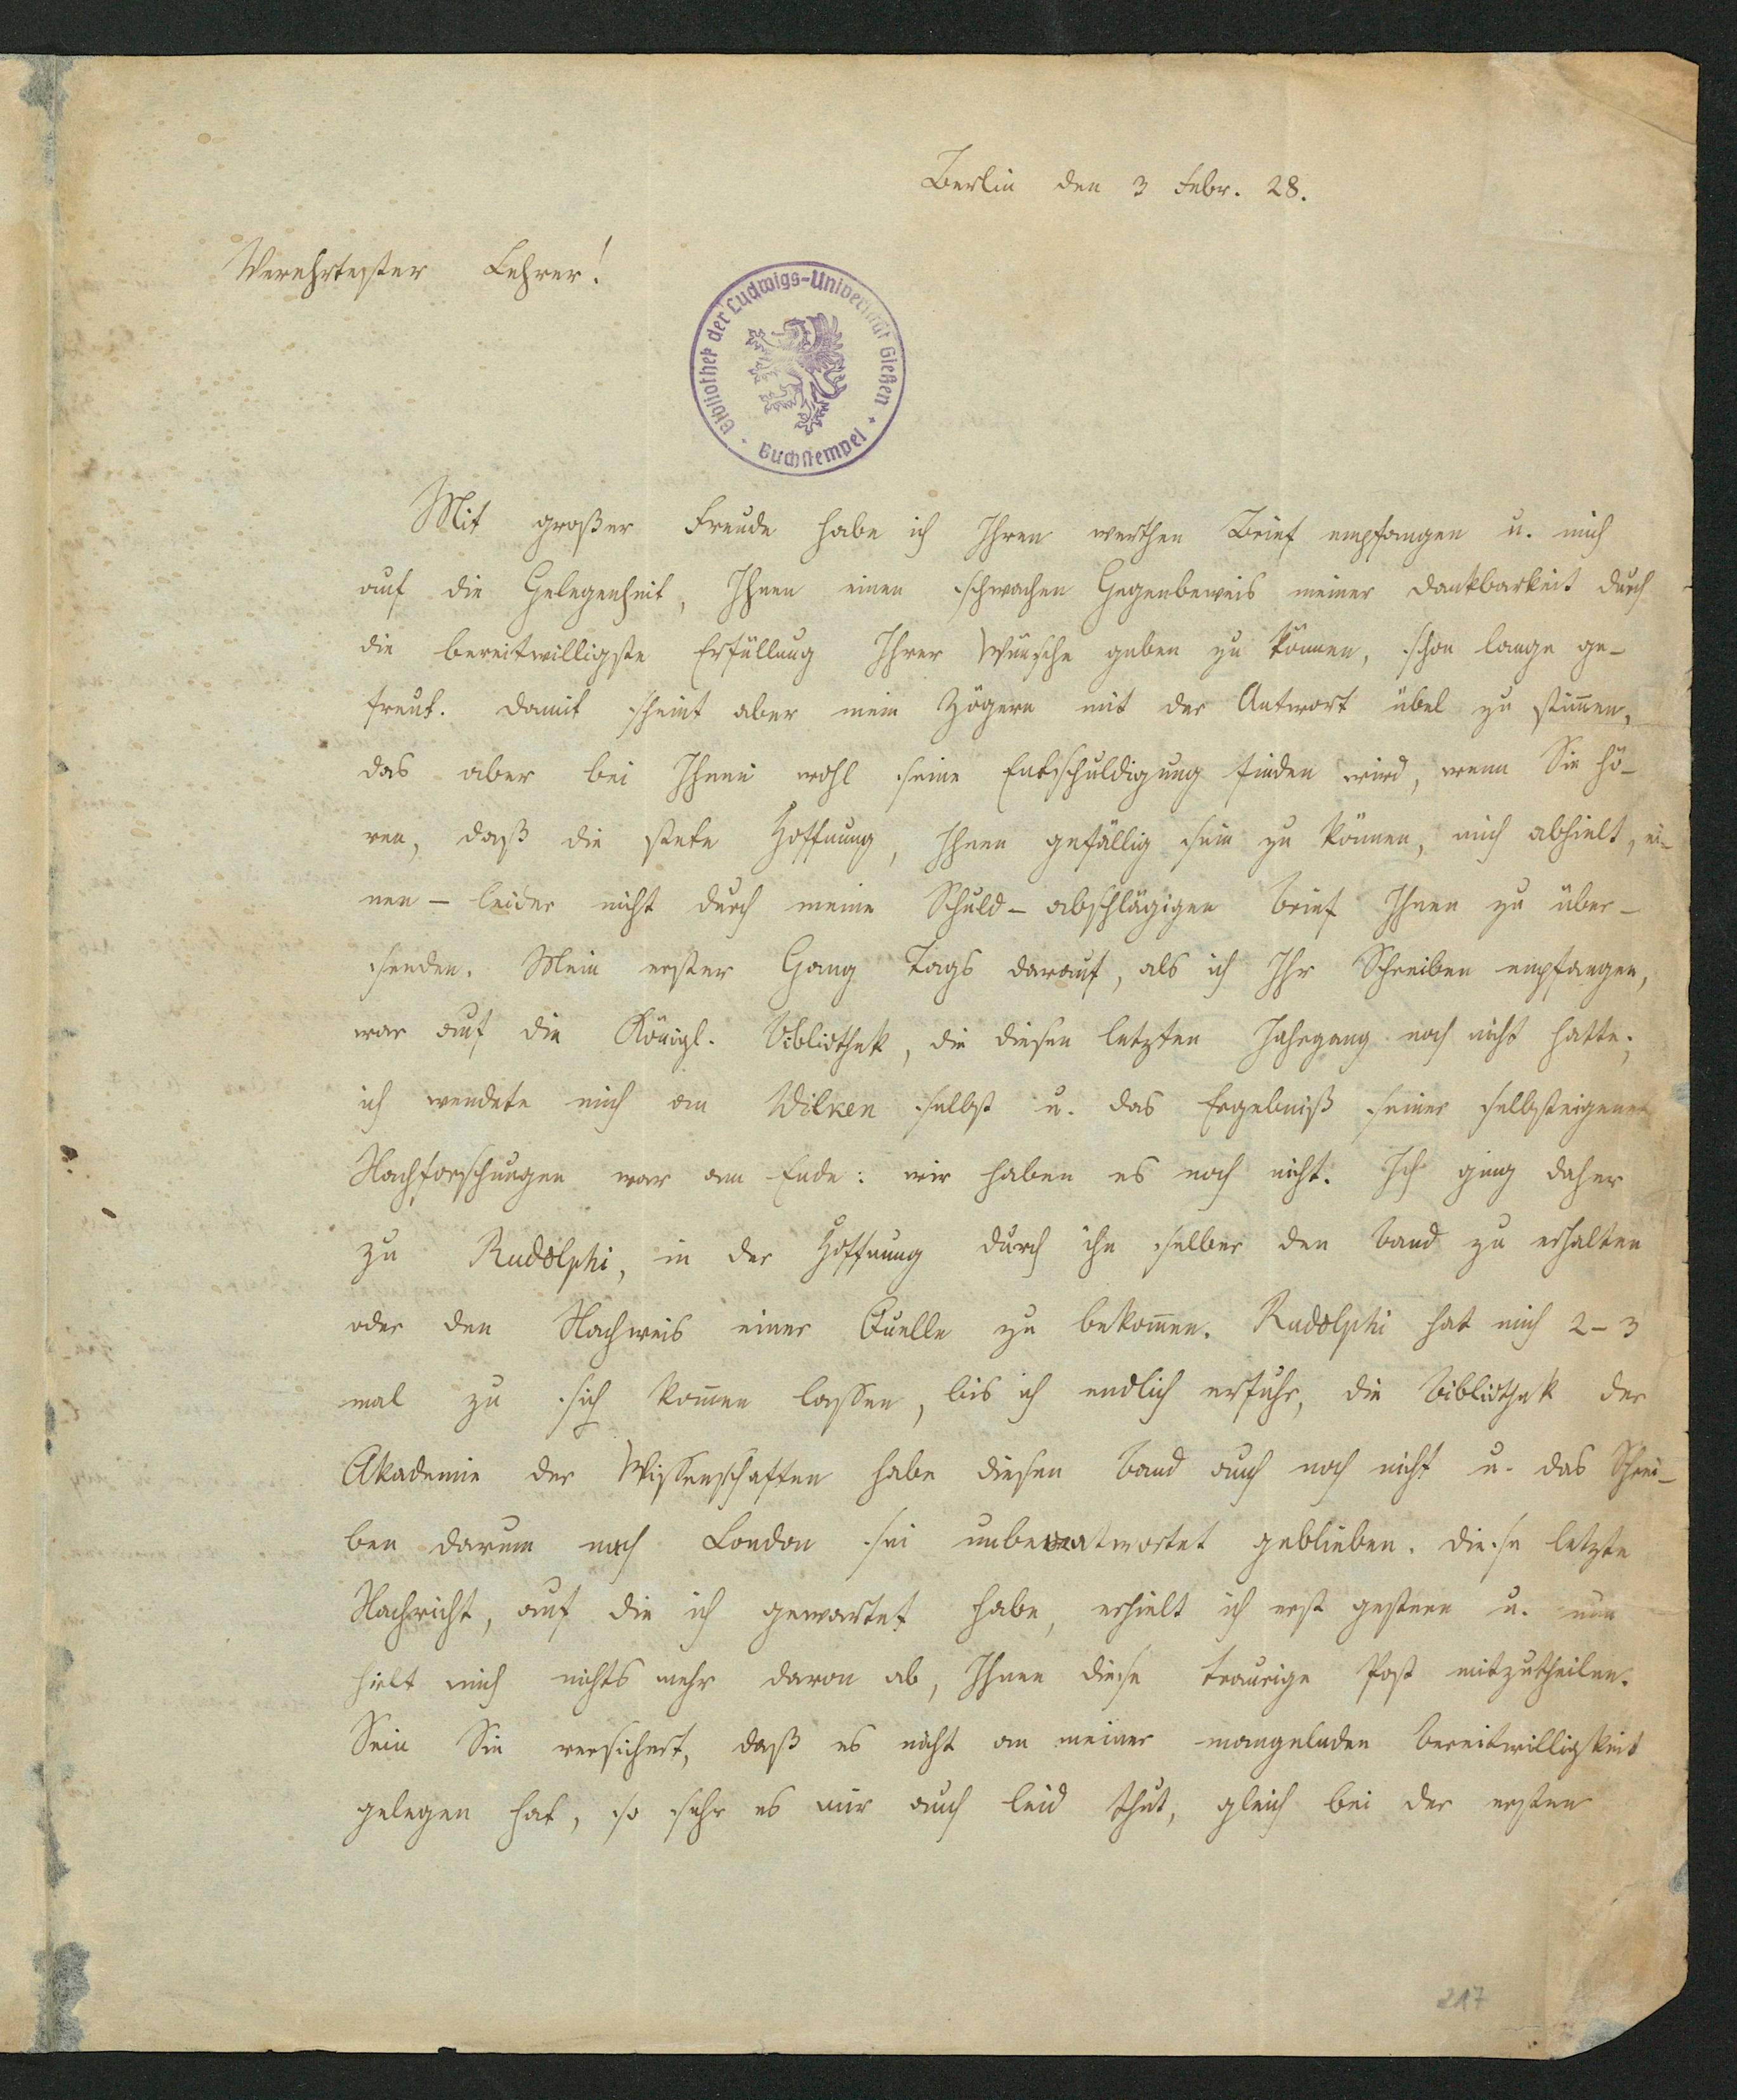 Berlin den 3 Febr. 28.
Verehrtester Lehrer!
Bibliothek der Ludwigs-Universität Gießen
Buchstempel
Mit großer Freude habe ich Ihren werthen Brief empfangen u. mich
auf die Gelegenheit, Ihnen einen schwachen Gegenbeweis meiner Dankbarkeit durch
die bereitwilligste Erfüllung Ihrer Wünsche geben zu können, schon lange ge-
freut. Damit scheint aber mein Zögern mit der Antwort übel zu stim̄en,
das aber bei Ihnen wohl seine Entschuldigung finden wird, wenn Sie hö-
ren, daß die stete Hoffnung, Ihnen gefällig sein zu können, mich abhielt, ei-
nen - leider nicht durch meine Schuld - abschlägigen Brief Ihnen zu über-
senden. Mein erster Gang Tags darauf, als ich Ihr Schreiben empfangen,
war auf die Königl. Bibliothek, die diesen letzten Jahrgang noch nicht hatte;
ich wendete mich an Wilken selbst u. das Ergebniß seiner selbsteigenen
Nachforschungen war am Ende: wir haben es noch nicht. Ich ging daher
zu Rudolphi, in der Hoffnung durch ihn selber den Band zu erhalten
oder den Nachweis einer Quelle zu bekom̄en. Rudolphi hat mich 2-3
mal zu sich kom̄en lassen, bis ich endlich erfuhr, die Bibliothek der
Akademie der Wissenschaften habe diesen Band auch noch nicht u. das Schrei-
ben darum nach London sei unbeantwortet geblieben. Diese letzte
Nachricht, auf die ich gewartet habe, erhielt ich erst gestern u. nun
hielt mich nichts mehr davon ab, Ihnen diese traurige Post mitzutheilen.
Sein Sie versichert, daß es nicht an meiner mangelnden Bereitwilligkeit
gelegen hat, so sehr es mir auch leid thut, gleich bei der ersten
217